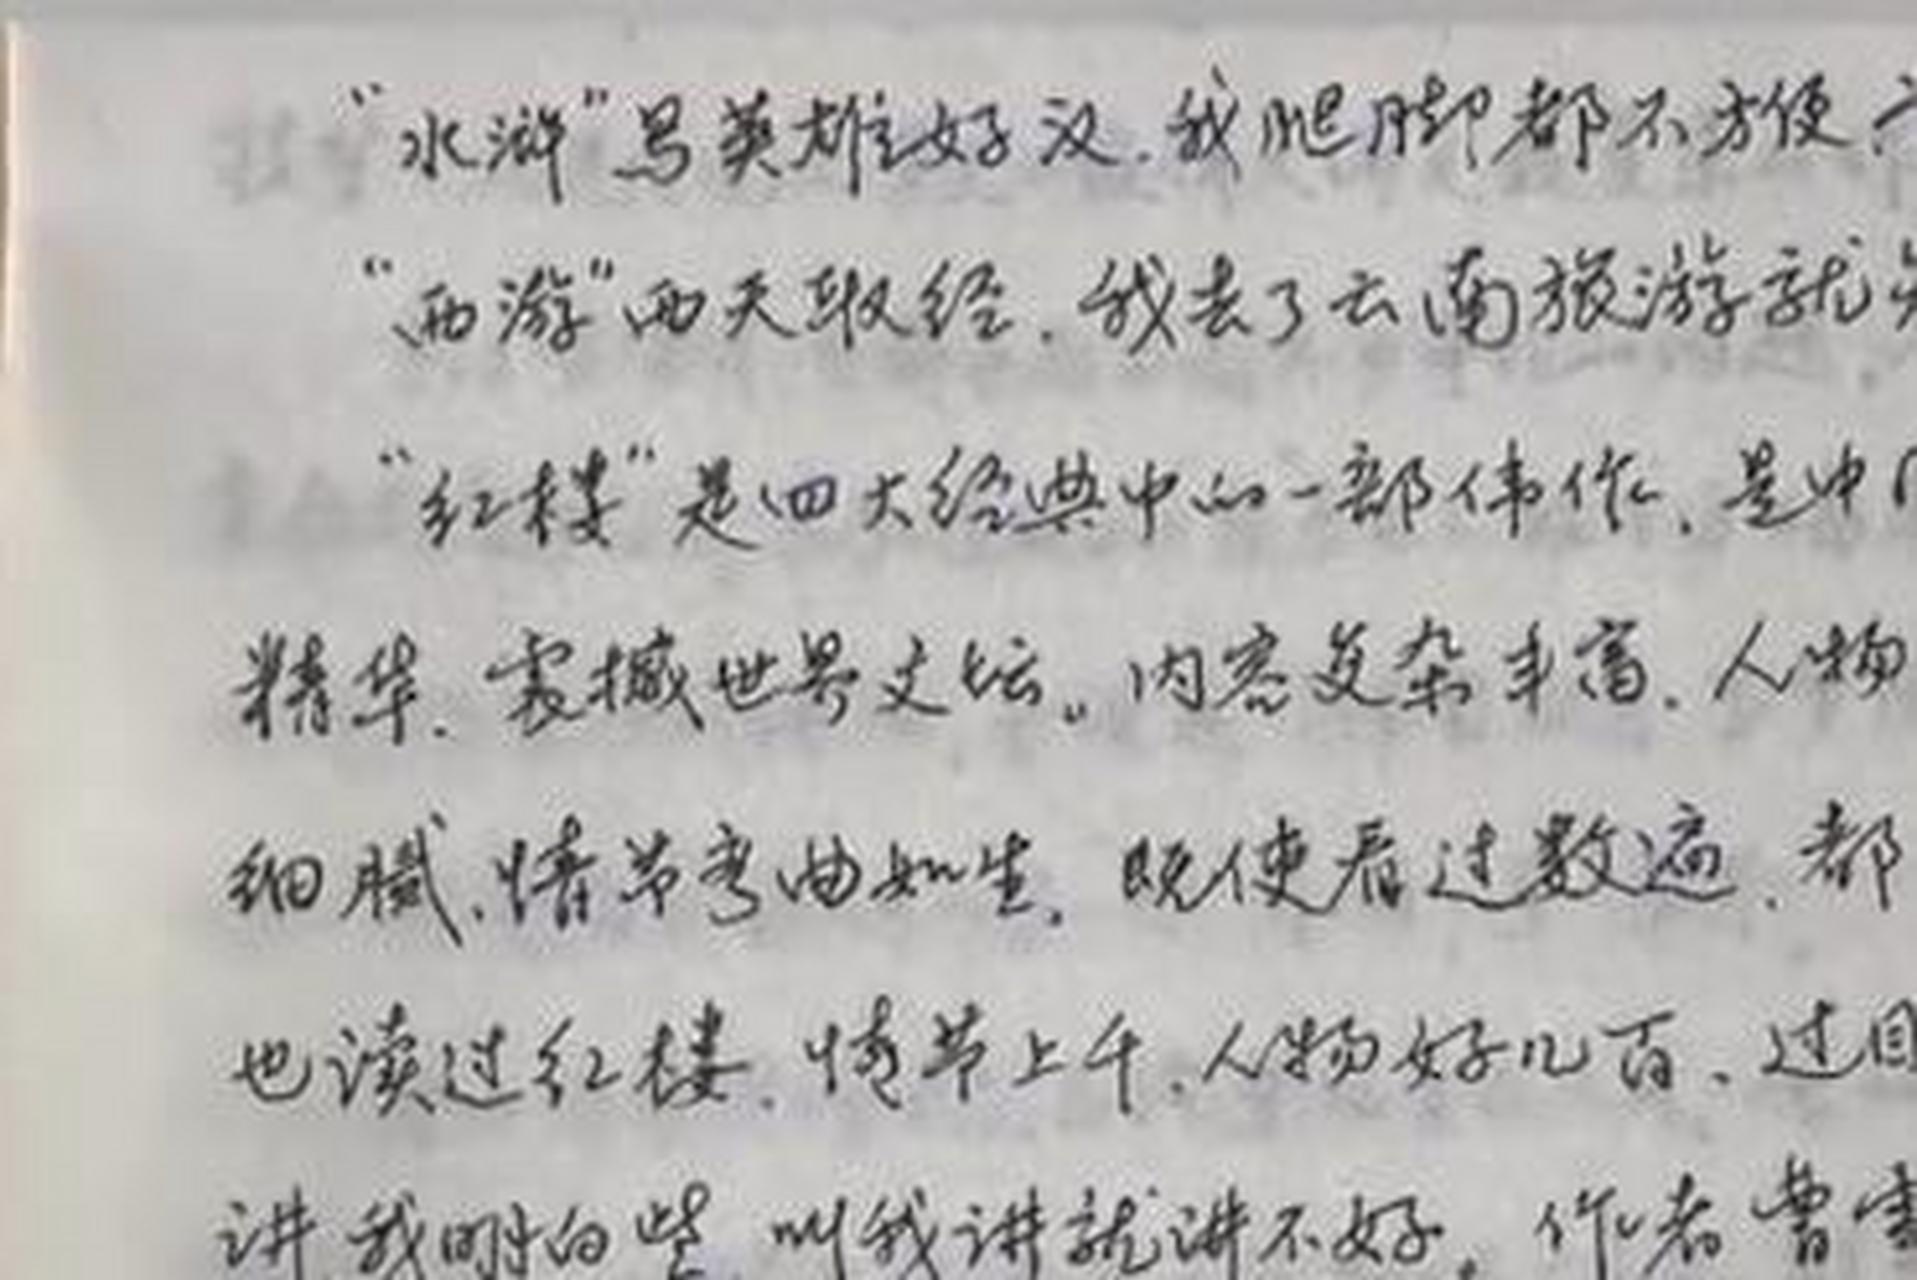 “水浒”写英雄好汉.我腿脚都不方便,
“西游”西天取经.我去了云南旅游就
“红楼”是四大经典中的一部伟作.是中
精华.震撼世界文坛。内容复杂丰富.人物
细腻.情节弯曲如生.既使看过数遍.都
也读过红楼.情节上千.人物好几百.过目
讲 我明白些 叫我讲就讲不好.作者曹雪